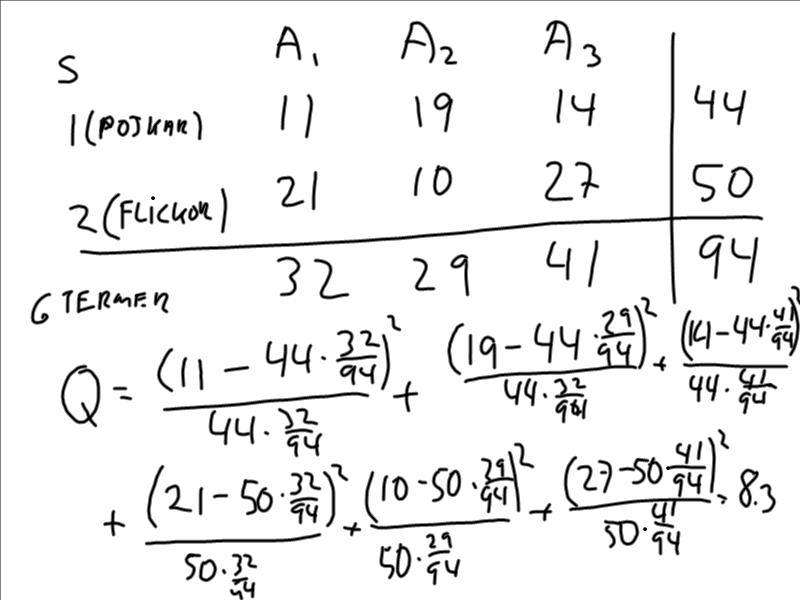 S A₁ A₂ A₃
1 (POJKAR) 11 19 14 44
2 (FLICKOR) 21 10 27 50
32 29 41 94
6 TERMER
Q = (11 − 44 · 32/94)²/(44 · 32/94) + (19 − 44 · 29/94)²/(44 · 32/94) + (14 − 44 · 41/94)²/(44 · 41/94)
+ (21 − 50 · 32/94)²/(50 · 32/94) + (10 − 50 · 29/94)²/(50 · 29/94) + (27 − 50 · 41/94)²/(50 · 41/94) = 8.3